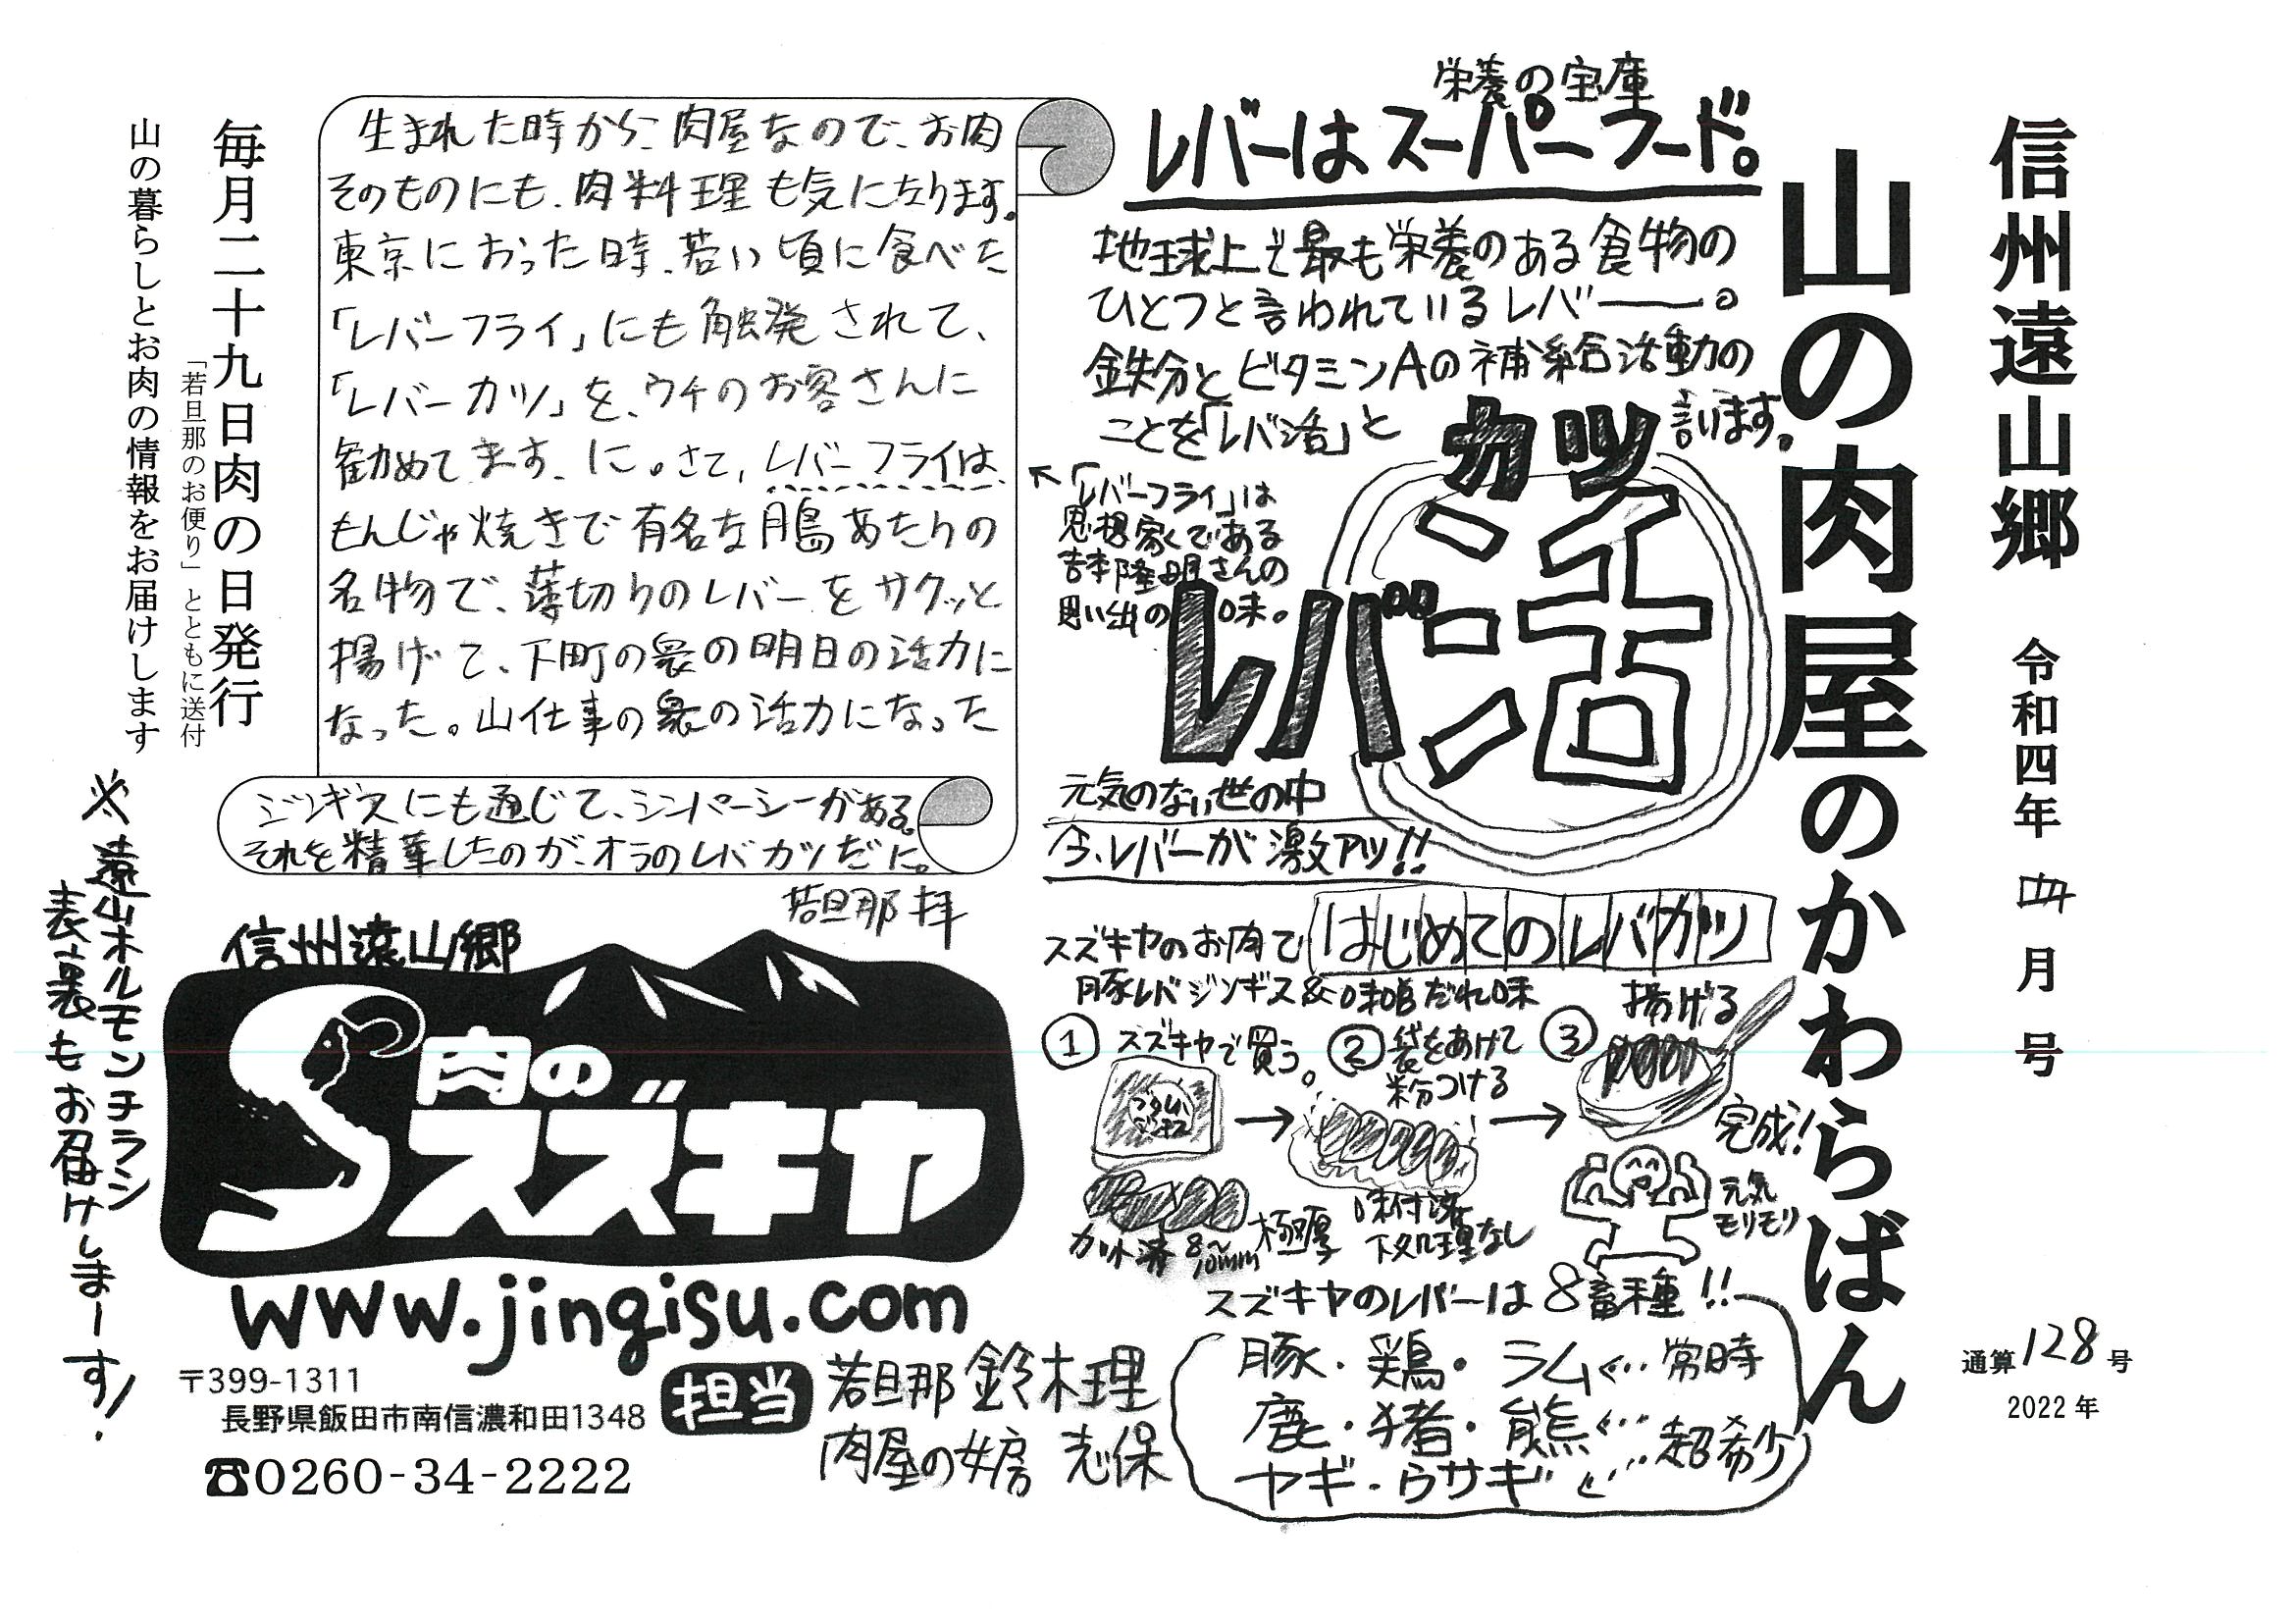 信州遠山郷 令和四年 四月号
通算128号
2022年
山の肉屋のかわらばん
栄養の宝庫
レバーはスーパーフード。
地球上で最も栄養のある食物の
ひとつと言われているレバー。
鉄分とビタミンAの補給活動の
ことを「レバ活」と
言います。
カツ
レバ活
↖「レバーフライ」は
思想家である
吉本隆明さんの
思い出の味。
元気のない世の中
今、レバーが激アツ!!
スズキヤのお肉で はじめてのレバカツ
豚レバジンギス&味噌だれ味
① スズキヤで買う。
カット済 8〜10mm 極厚
② 袋をあけて
粉つける
味付済
下処理なし
③ 揚げる
完成!
元気
モリモリ
スズキヤのレバーは8畜種!!
豚・鶏・ラム←…常時
鹿・猪・熊←…超希少
ヤギ・ウサギ←…
生まれた時から、肉屋なので、お肉
そのものにも、肉料理も気になります。
東京におった時、若い頃に食べた
「レバーフライ」にも触発されて、
「レバーカツ」を、ウチのお客さんに
勧めてます、に。さて、レバーフライは、
もんじゃ焼きで有名な月島あたりの
名物で、薄切りのレバーをサクッと
揚げて、下町の衆の明日の活力に
なった。山仕事の衆の活力になった
ジンギスにも通じて、シンパシーがある。
それを精華したのが、オラのレバカツだに。
若旦那 拝
毎月二十九日肉の日発行
「若旦那のお便り」とともに送付
山の暮らしとお肉の情報をお届けします
※遠山ホルモンチラシ
表裏もお届けしまーす!
信州遠山郷
肉の
スズキヤ
www.jingisu.com
〒399-1311
長野県飯田市南信濃和田1348
☎0260-34-2222
担当 若旦那 鈴木理
肉屋の女房 志保